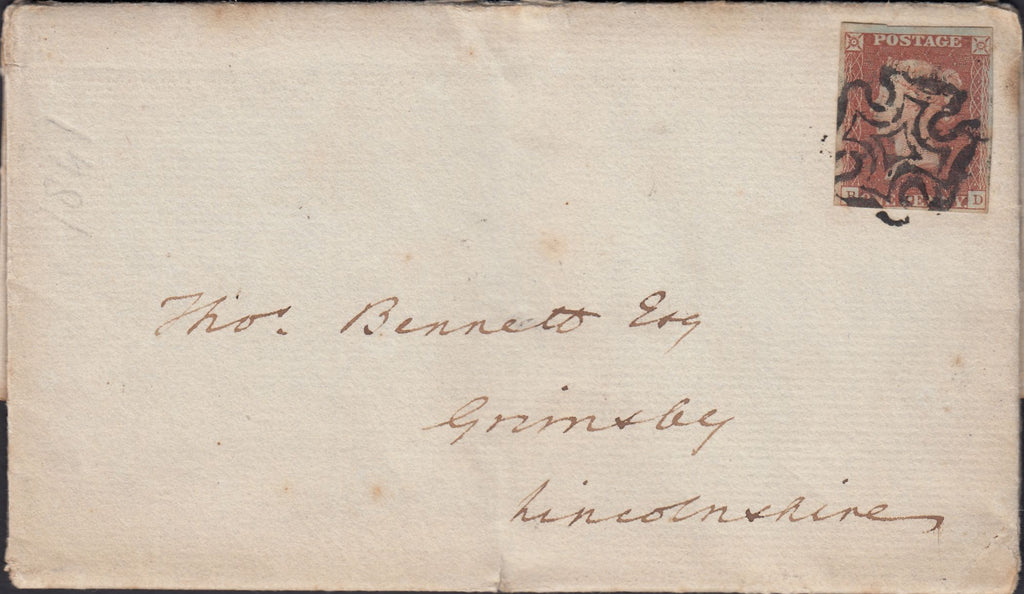 POSTAGE
D
1841
Thos. Bennett Esq
Grimsby
Lincolnshire